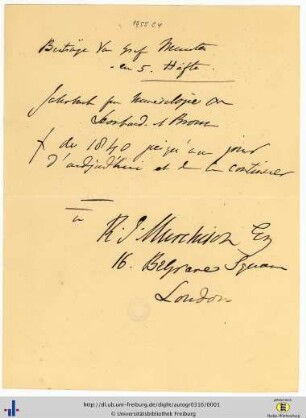 1955 C4
Beiträge Von Graf Munster
en 5. Hefte.
Jahrbuch fur Mineralogie von
Leonhard & Bronn
de 1840 jusqu'au jour
d'aujourd'hui et de la continuer
à
R. I. Murchison Esq
16. Belgrave Square
London
http://dl.ub.uni-freiburg.de/diglit/autogr0316/0001
© Universitätsbibliothek Freiburg